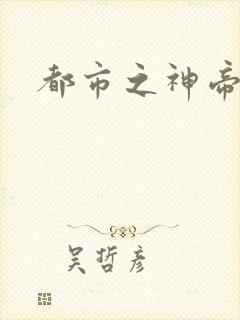 都市之神帝
吴哲彦